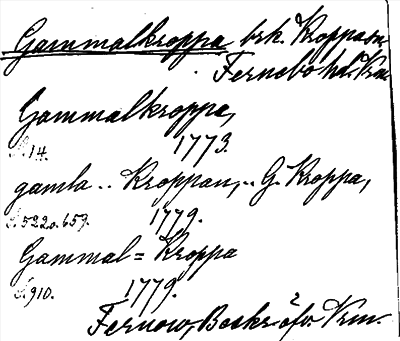 Gammalkroppa brk. Kroppa sn
Fernebo hd. Vrm.
Gammalkroppa,
S. 14. 1773.
gamla .. Kroppan, .. G. Kroppa,
S. 522 o. 659. 1779.
Gammal=Kroppa
S. 910. 1779.
Fernow, Beskr. öfv. Vrm.